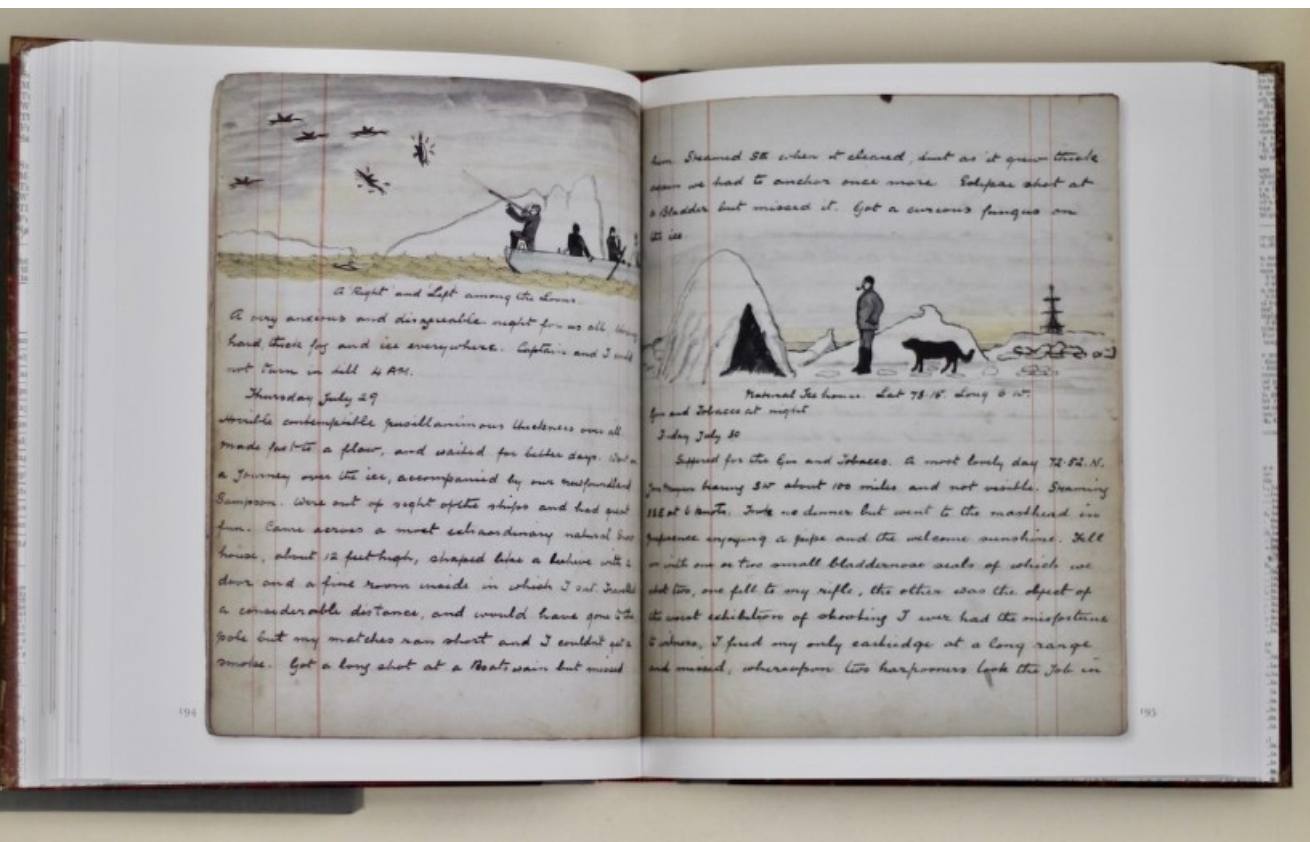 A Right and Left among the Loons.
A very anxious and disagreeable night for us all
hard thick fog and ice everywhere. Captain and I
not turn in till 4 AM.
Thursday July 29
Horrible contemptible pusillanimous thickness over all.
made fast to a flaw, and waited for better days. Went on
a Journey over the ice, accompanied by our newfoundland
Sampson. Were out of sight of the ships and had great
fun. Came across a most extraordinary natural
house, about 12 feet high, shaped like a beehive with a
door and a fine room inside in which I sat. Travelled
a considerable distance, and would have gone to the
pole but my matches ran short and I couldn't get a
smoke. Got a long shot at a Boatswain but missed
194
him Steamed SE when it cleared, but as it grew thick
again we had to anchor once more Eclipse shot at
a Bladder but missed it. Got a curious fungus on
the ice
Natural Ice house. Lat 73.15. Long 6 W.
Gin and Tobacco at night
Friday July 30
Suffered for the Gin and Tobacco. A most lovely day 72.52.N.
Jan Mayen bearing SW about 100 miles and not visible. Steaming
at 6 knots. Took no dinner but went to the masthead in
preference enjoying a pipe and the welcome sunshine. Fell
in with one or two small bladdernose seals of which we
shot two, one fell to my rifle, the other was the object of
the worst exhibition of shooting I ever had the misfortune
to witness, I fired my only cartridge at a long range
and missed, whereupon two harpooners took the Job in
195